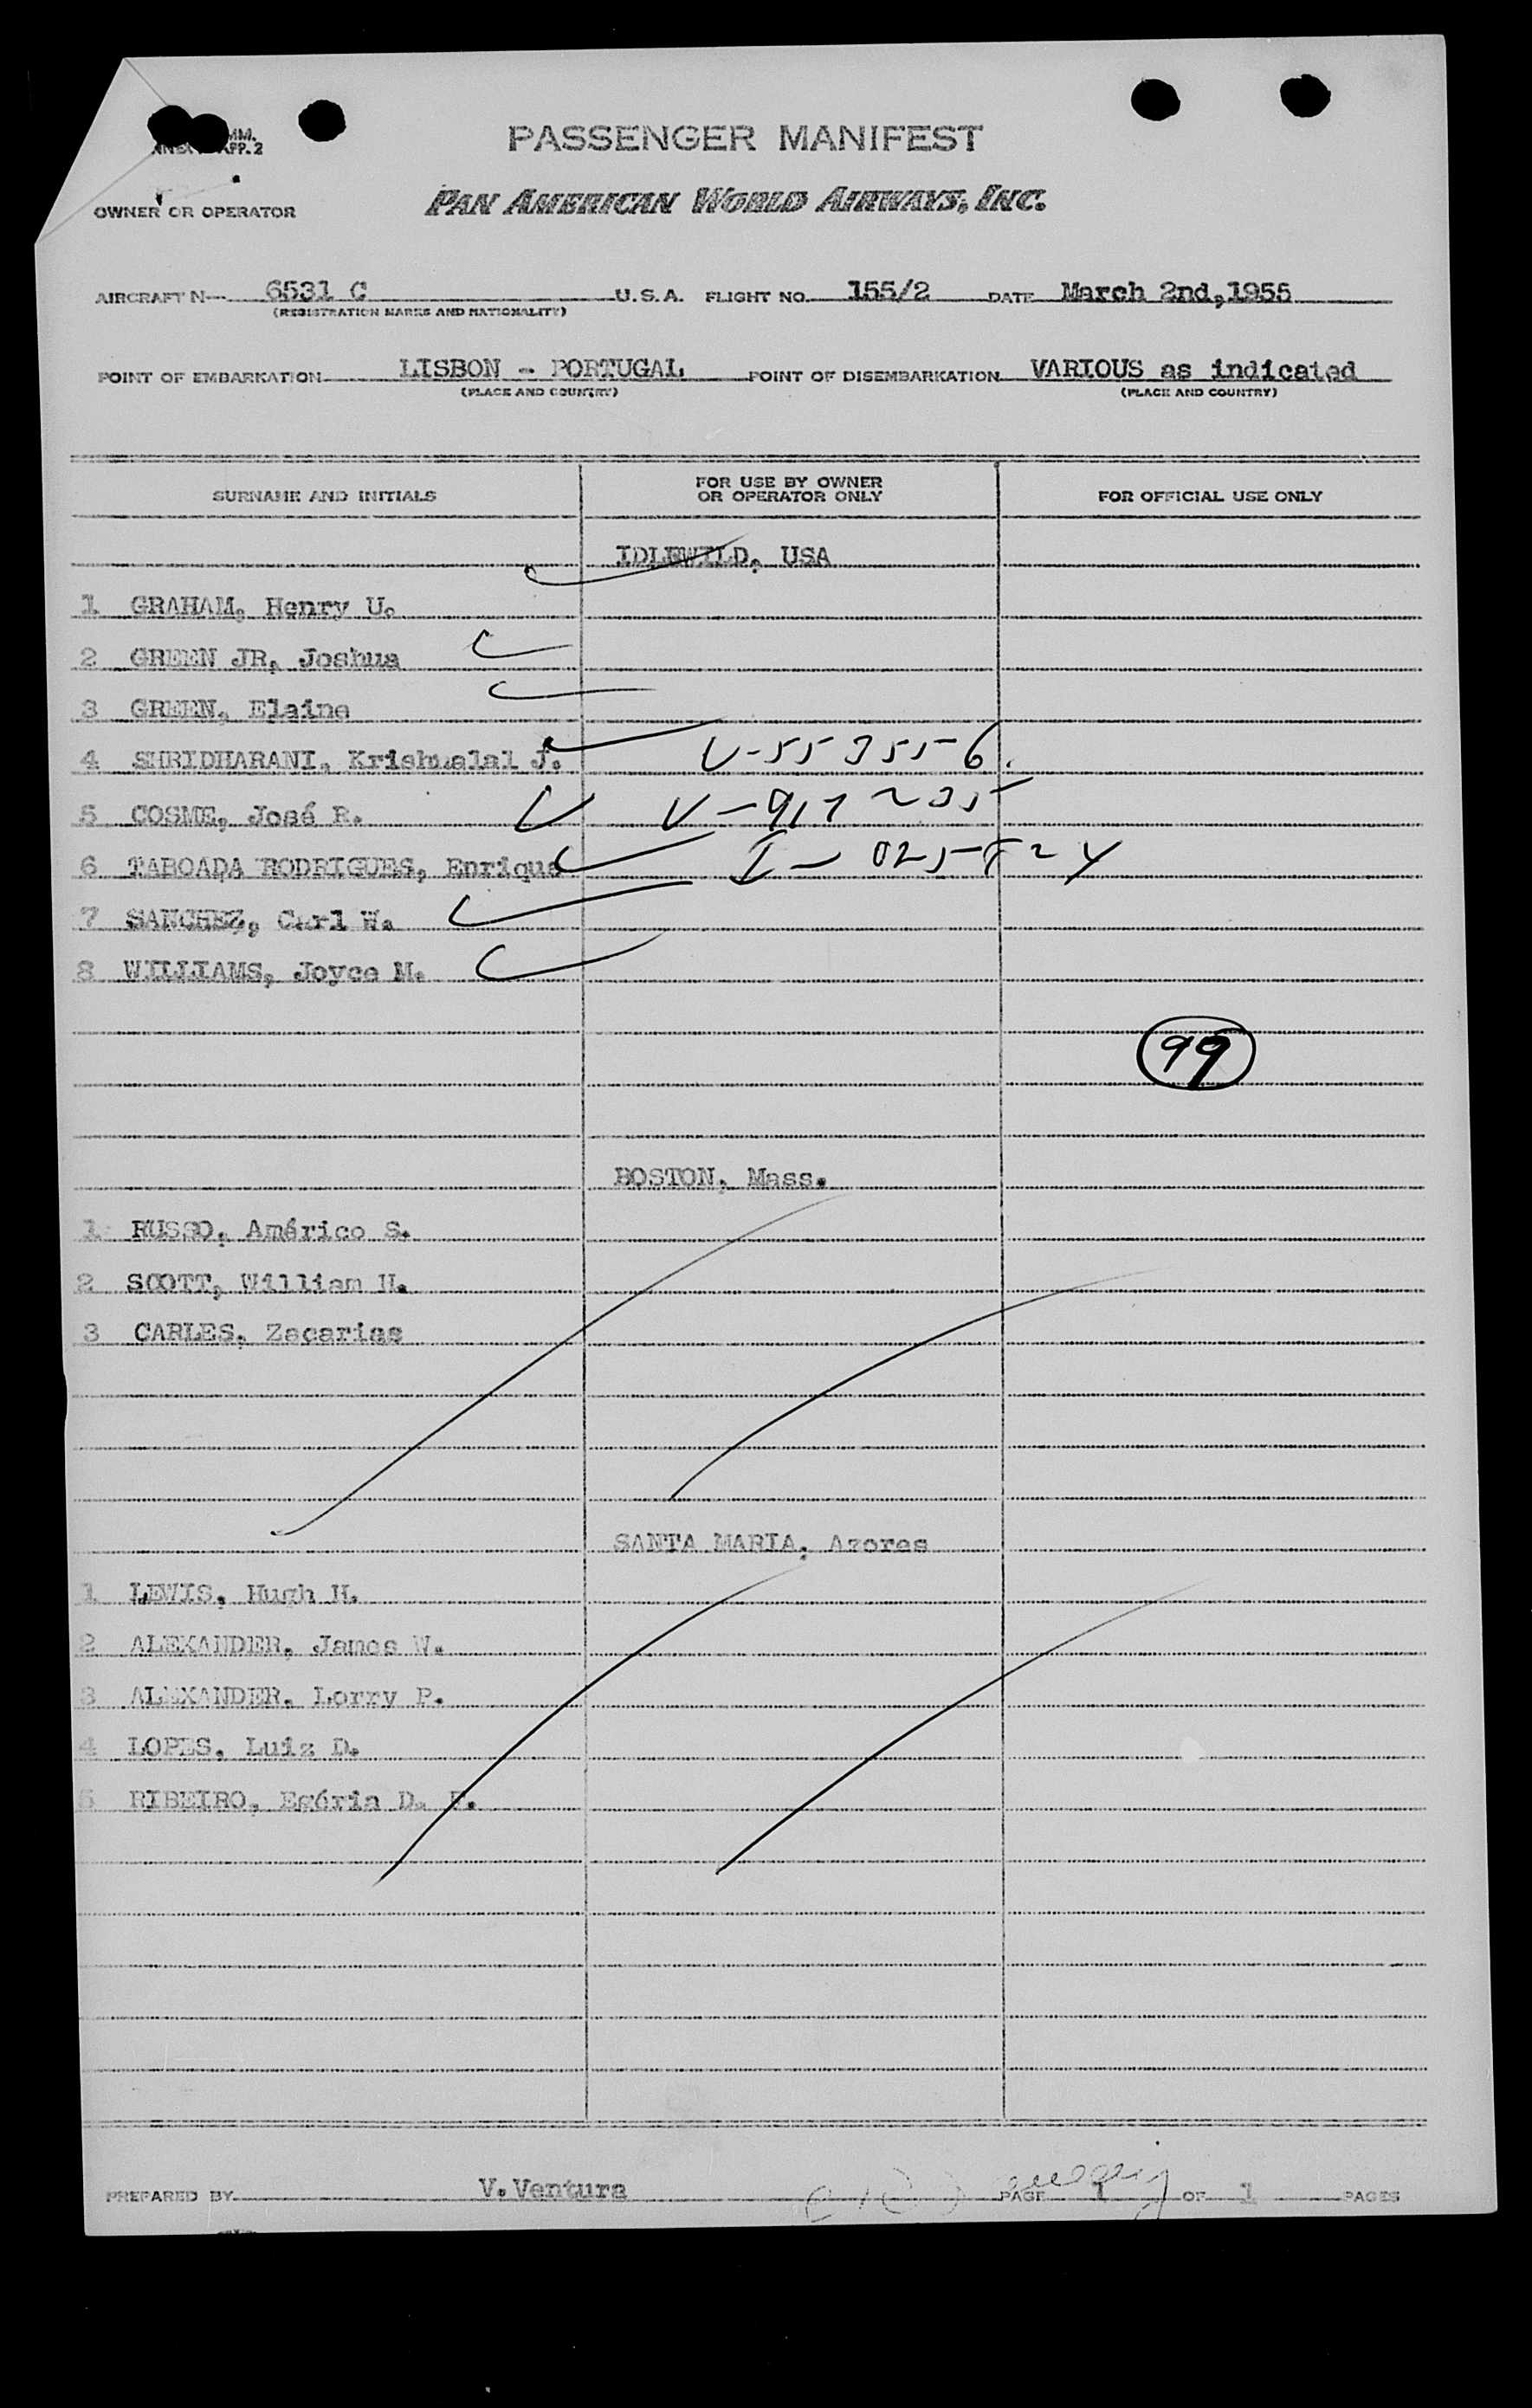 PASSENGER MANIFEST
APP. 2
OWNER OR OPERATOR
PAN AMERICAN WORLD AIRWAYS, INC.
AIRCRAFT N 6531 C U.S.A. FLIGHT NO. 155/2 DATE March 2nd,1955
(REGISTRATION MARKS AND NATIONALITY)
POINT OF EMBARKATION LISBON - PORTUGAL POINT OF DISEMBARKATION VARIOUS as indicated
(PLACE AND COUNTRY) (PLACE AND COUNTRY)
SURNAME AND INITIALS FOR USE BY OWNER OR OPERATOR ONLY FOR OFFICIAL USE ONLY
IDLEWILD, USA
1 GRAHAM, Henry U.
2 GREEN JR, Joshua
3 GREEN, Elaine
4 SHRIDHARANI, Krishnalal J. V-553556
5 COSME, José R. V-917235
6 TABOADA RODRIGUES, Enrique
7 SANCHEZ, Carl W.
8 WILLIAMS, Joyce M.
99
BOSTON, Mass.
1 RUSSO, Américo S.
2 SCOTT, William H.
3 CARLES, Zacarias
SANTA MARIA, Azores
1 LEWIS, Hugh H.
2 ALEXANDER, James W.
3 ALEXANDER, Lorry P.
4 LOPES, Luiz D.
5 RIBEIRO, Egéria D. F.
PREPARED BY V.Ventura PAGE 1 OF 1 PAGES